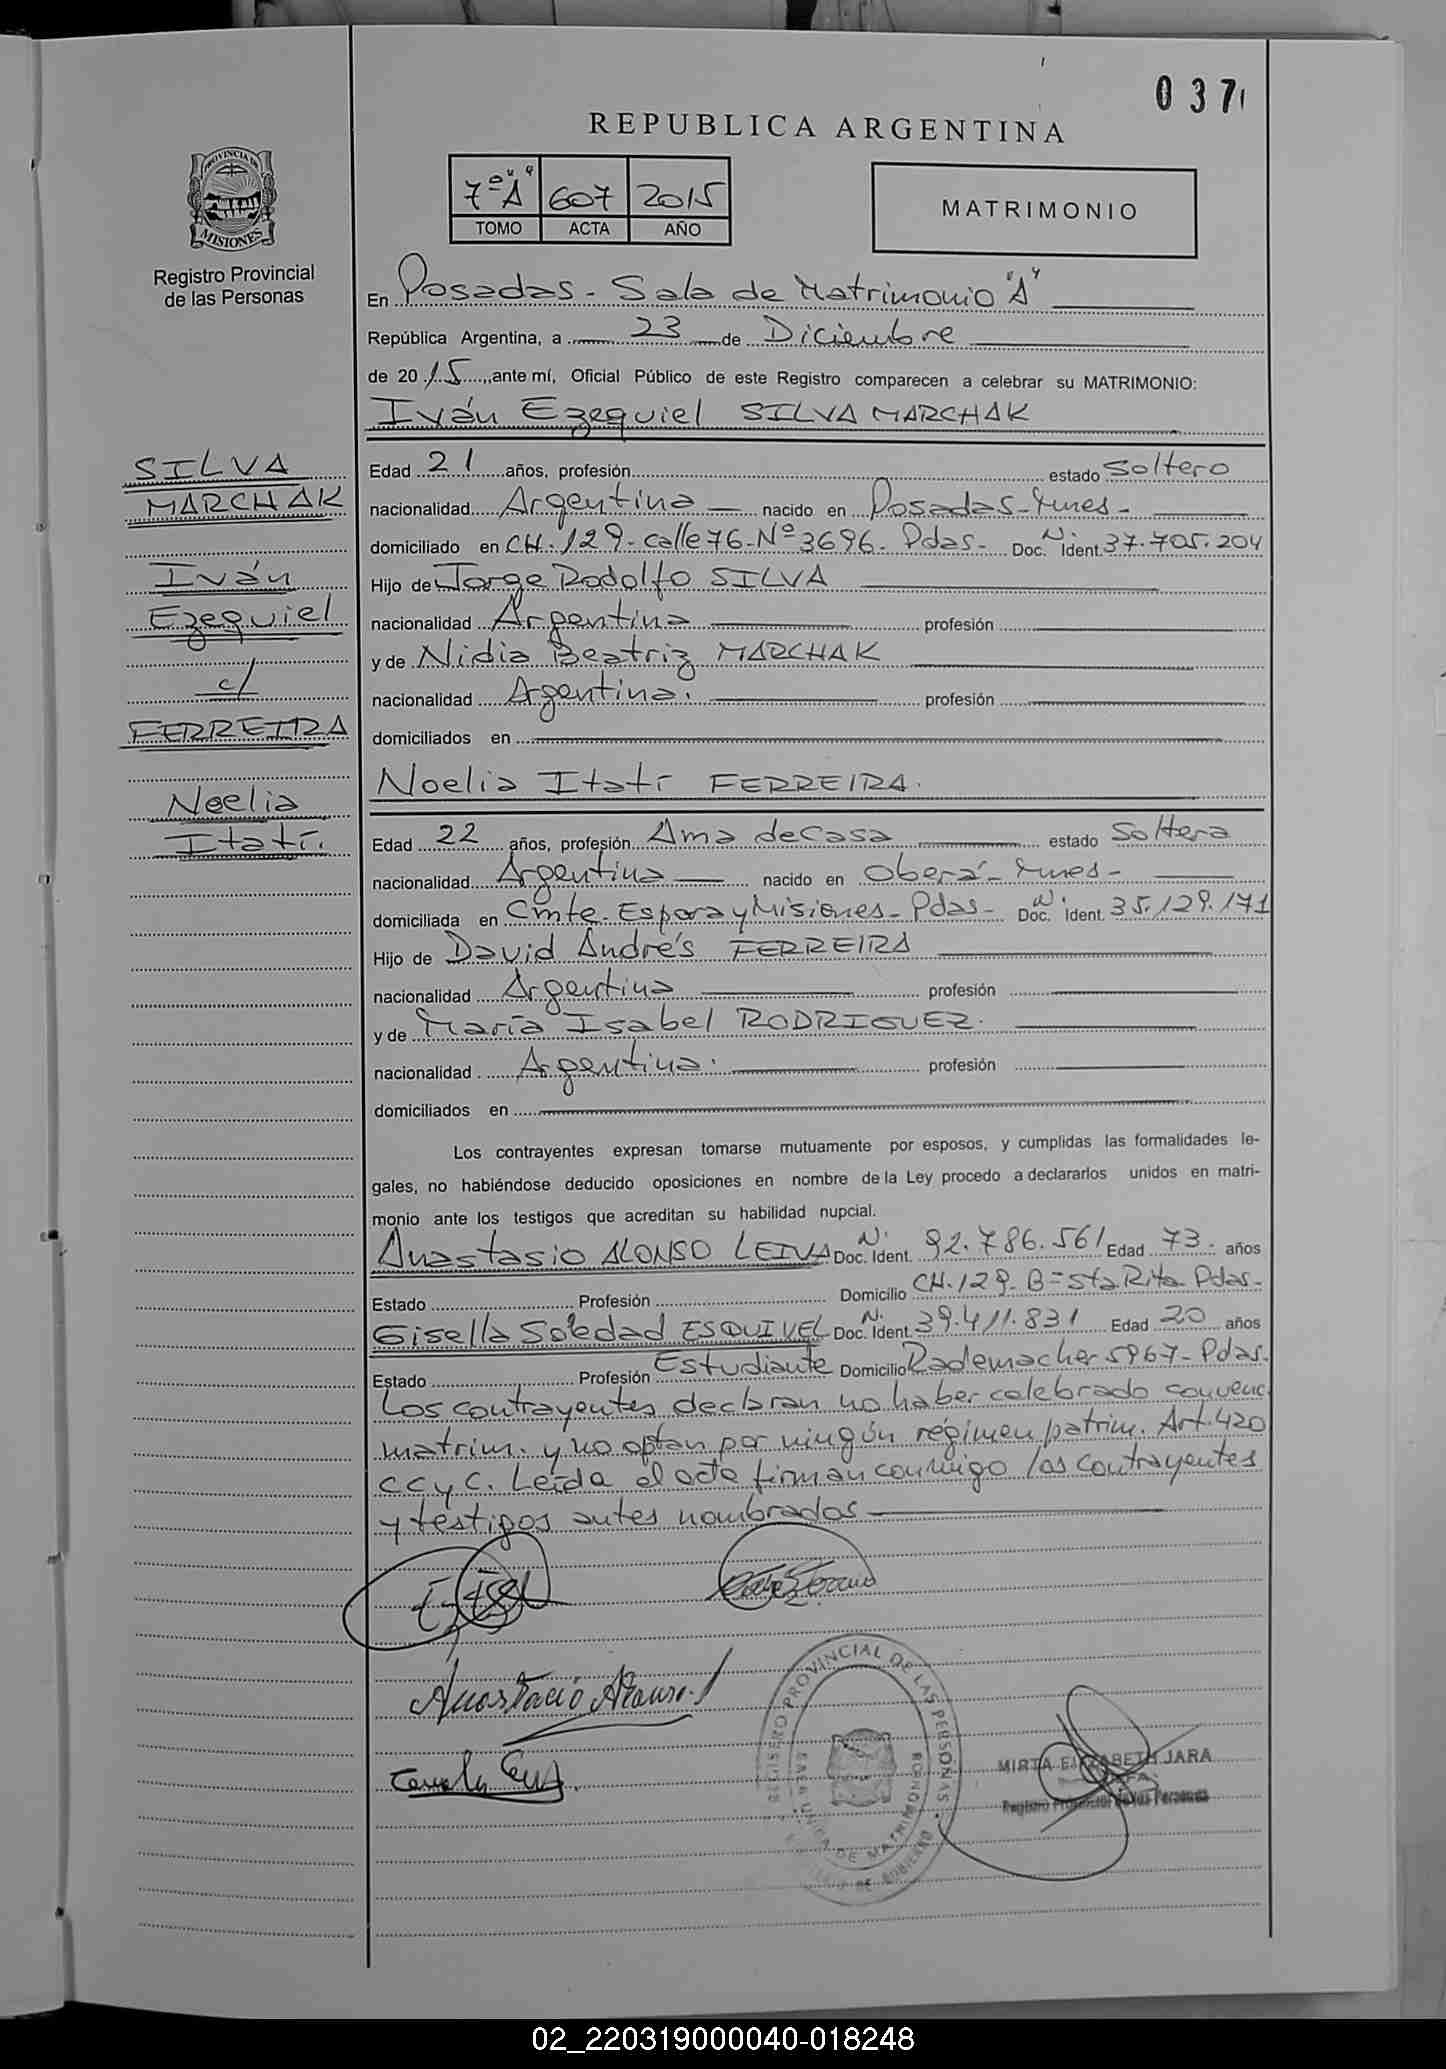 037
REPUBLICA ARGENTINA
PROVINCIA DE
MISIONES
Registro Provincial
de las Personas
7º "A" 607 2015
TOMO ACTA AÑO
MATRIMONIO
En Posadas - Sala de Matrimonio "A"
República Argentina, a 23 de Diciembre
de 2015, ante mí, Oficial Público de este Registro comparecen a celebrar su MATRIMONIO:
Iván Ezequiel SILVA MARCHAK
SILVA
MARCHAK
Iván
Ezequiel
c/
FERREIRA
Noelia
Itatí.
Edad 21 años, profesión estado Soltero
nacionalidad Argentina nacido en Posadas - Mnes -
domiciliado en CH. 129 - calle 76 - Nº 3696 - Pdas - Doc. N. Ident. 37.705.204
Hijo de Jorge Rodolfo SILVA
nacionalidad Argentina profesión
y de Nidia Beatriz MARCHAK
nacionalidad Argentina. profesión
domiciliados en
Noelia Itatí FERREIRA.
Edad 22 años, profesión Ama de casa estado Soltera
nacionalidad Argentina nacido en Oberá - Mnes -
domiciliada en Cmte. Espora y Misiones - Pdas - Doc. N. Ident. 35.129.171
Hijo de David Andrés FERREIRA
nacionalidad Argentina profesión
y de María Isabel RODRIGUEZ.
nacionalidad Argentina. profesión
domiciliados en
Los contrayentes expresan tomarse mutuamente por esposos, y cumplidas las formalidades le-
gales, no habiéndose deducido oposiciones en nombre de la Ley procedo a declararlos unidos en matri-
monio ante los testigos que acreditan su habilidad nupcial.
Anastasio ALONSO LEIVA Doc. N. Ident. 92.786.561 Edad 73. años
Estado Profesión Domicilio CH. 129 - Bº Sta Rita - Pdas -
Gisella Soledad ESQUIVEL Doc. N. Ident. 39.411.831 Edad 20 años
Estado Profesión Estudiante Domicilio Rademacher 5967 - Pdas.
Los contrayentes declaran no haber celebrado convenc.
matrim. y no optan por ningún régimen patrim. Art. 420
CC y C. Leída el acta firman conmigo los contrayentes
y testigos antes nombrados
Anastacio Alonso.
REGISTRO PROVINCIAL DE LAS PERSONAS
DE MATRIMONIO
MIRTA ELIZABETH JARA
Registro Provincial de las Personas
02_220319000040-018248